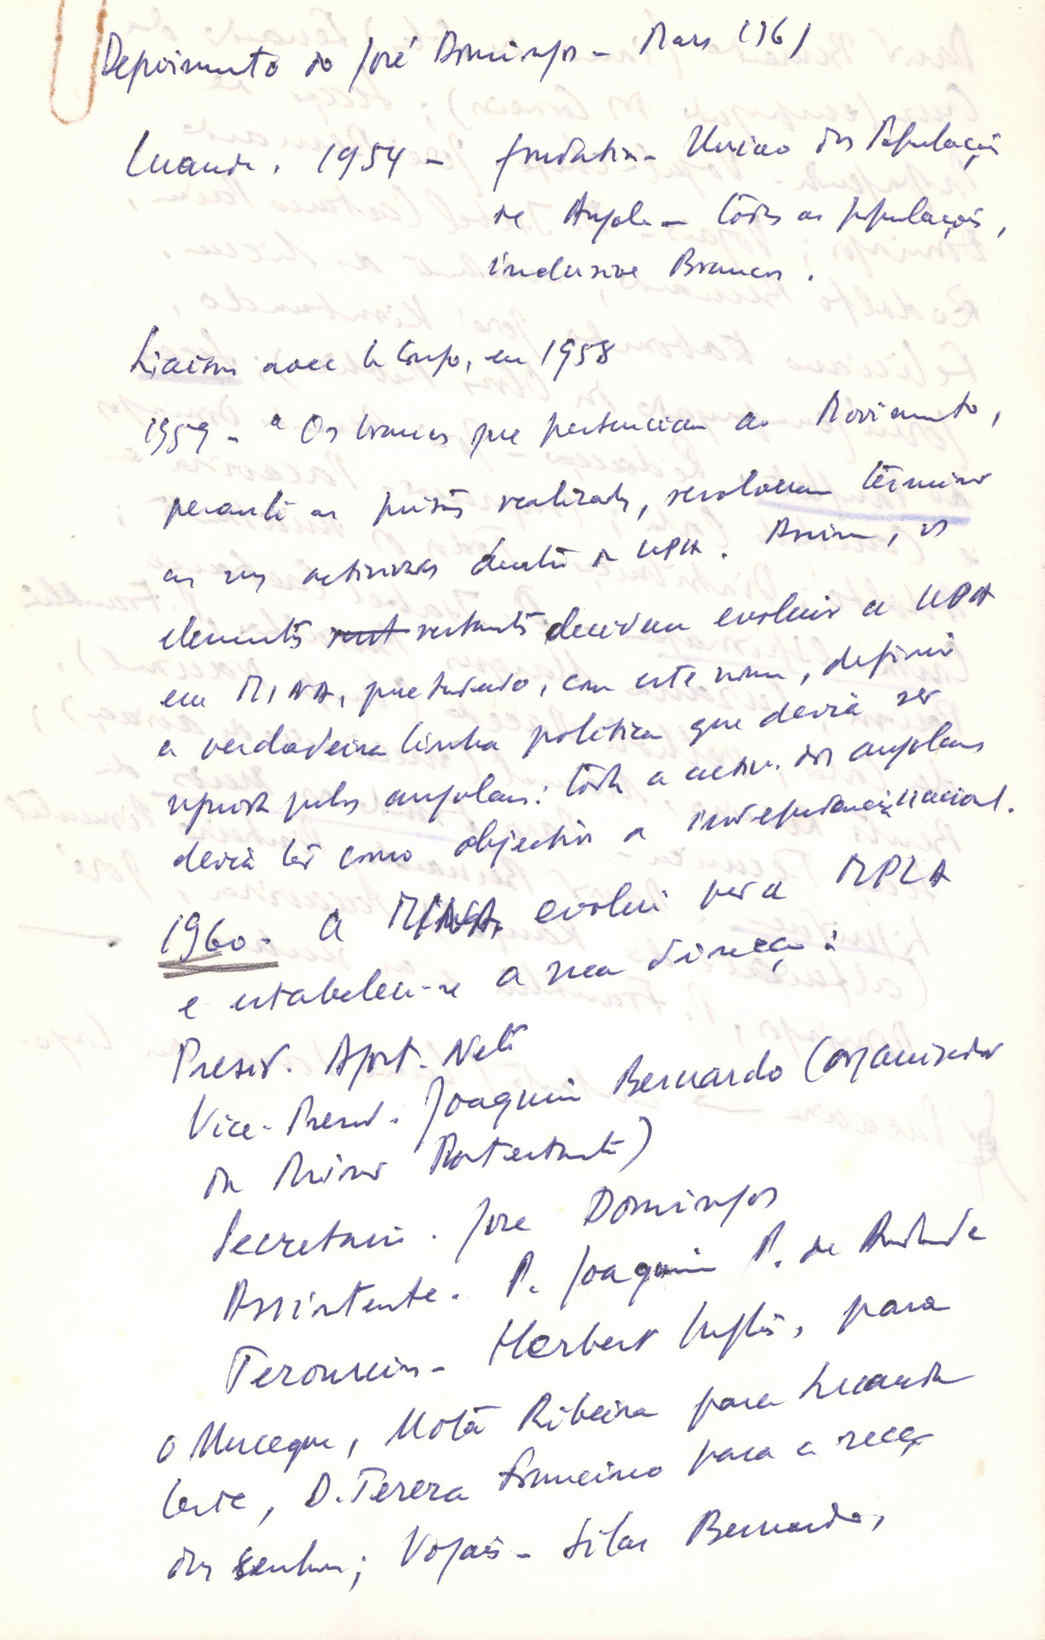 Depoimento do José Domingos - Mars 1961
Luanda. 1954 - fondation - União das Populações
de Angola - tôdas as populações,
inclusive Brancos.
Liaison avec le Congo, en 1958
1959 - "Os brancos que pertenciam ao Movimento,
perante as prisões realizadas, resolveram terminar
as suas actividades dentro da UPA. Assim, os
elementos rest restantes decidem evoluir a UPA
em MINA, pretendendo, com este nome, definir
a verdadeira linha politica que devia ser
pelos angolanos: tôda a activ. dos angolanos
devia ter como objectivo a independência nacional.
1960 - a MINA, evolui para MPLA
e estabelece-se a sua direcção:
Presid. Agost. Neto
Vice-Presid. Joaquim Bernardo (organizador
da Missão Protestante)
Secretario. José Domingos
Assistente. P. Joaquim P. de Andrade
Tesoureiro - Herbert Inglês, para
o Muceque, Mota Ribeira para Luanda
leste, D. Teresa Francisco para a secç
das senhoras; Vogais - Silas Bernardo,